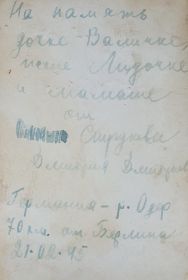 На память
дочке Валичке
жене Лидочке
и мамаше
от
Струкова
Дмитрия Дмитр
Германия - р. Одер
70 км. от Берлина
21.02.45